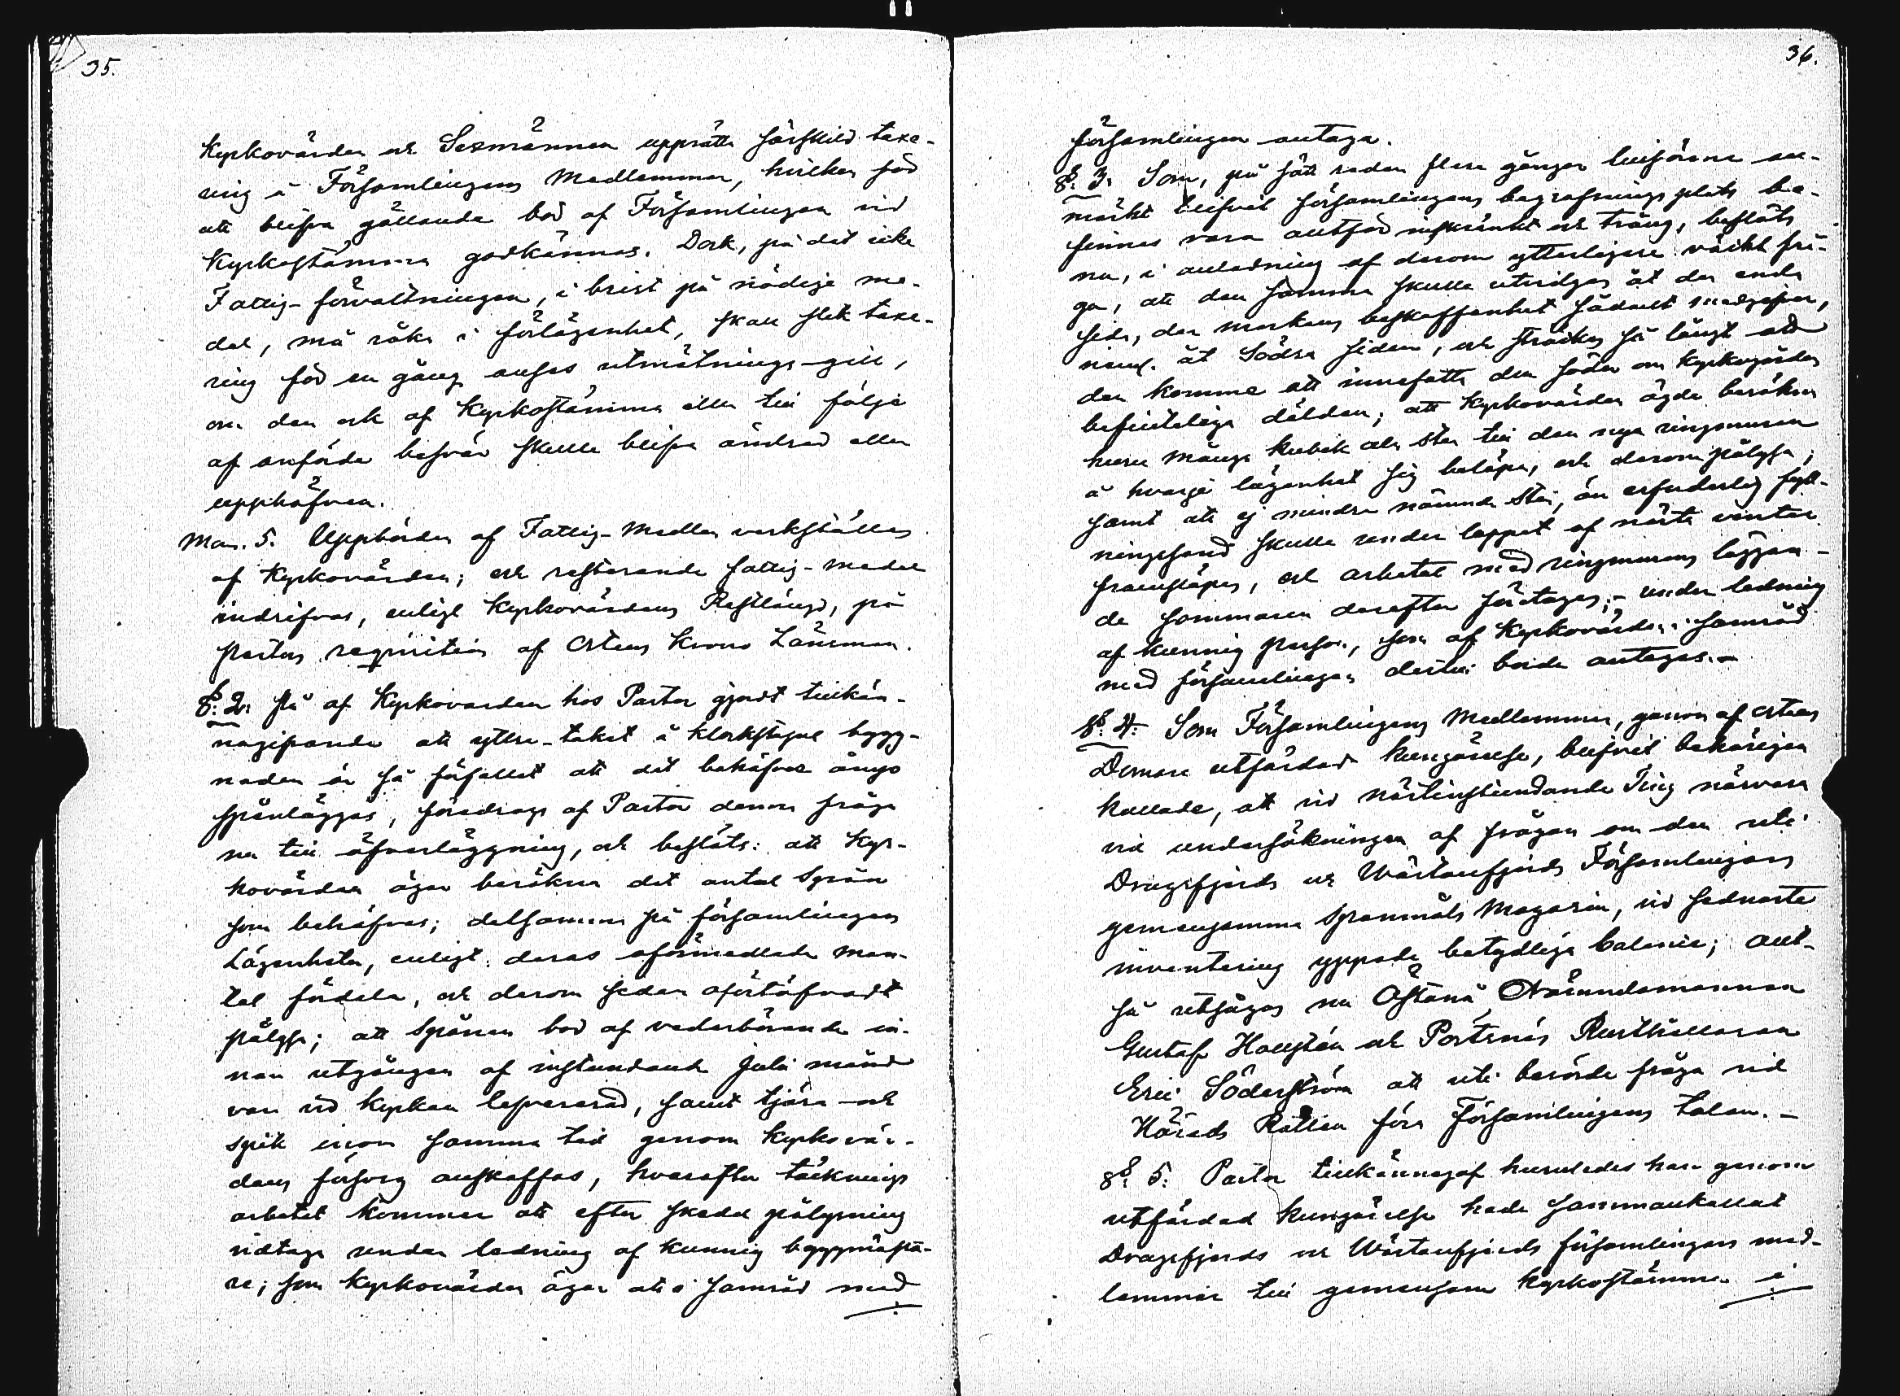 35.
Kyrkovärden och Sexmännen upprätta särskild taxe-
ring å Församlingens Medlemmar, hvilken för
att blifva gällande bör af Församlingen vid
Kyrkostämma godkännas. Dock, på det icke
Fattig-förvaltningen, i brist på nödige me-
del, må råka i förlägenhet, skall slik taxe-
ring för en gång anses utmätnings-gill,
om den ock af Kyrkostämma eller till följe
af anförda besvär skulle blifva ändrad eller
upphäfven.
Mom. 5. Uppbörden af Fattig-Medlen verkställes
af Kyrkovärden; och resterande fattig-medel
indrifvas, enligt Kyrkovärdens Restlängd, på
pastors requisition af Ortens Krono Länsman.
§. 2. På af Kyrkovärden hos Pastor gjordt tillkän-
nagifvande att yttre-taket å klockstapel bygg-
naden är så förfallet att det behöfver ånyo
spånläggas, föredrogs af Pastor denna fråga
nu till öfverläggning, och beslöts: att Kyr-
kovärden äger beräkna det antal Spån
som behöfves; detsamma på församlingens
Lägenheter, enligt deras oförmedlade man-
tal fördela, och derom sedan oförtöfvadt
pålysa; att Spånen bör af vederbörande in-
nan utgången af instundande Juli månad
vara vid kyrkan lefvererad, samt tjära och
spik inom samma tid genom kyrkovär-
dens försorg anskaffas, hvarefter täcknings
arbetet kommer att efter skedd pålysning
vidtaga under ledning af kunnig byggmästa-
re; som Kyrkovärden äger att i samråd med
36.
församlingen antaga.
§. 3. Som, på sätt redan flere gånger härförinnan an-
märkt blifvit församlingens begrafningsplats be-
finnes vara alltför inskränkt och trång, beslöts
nu, i anledning af derom ytterligare väckt frå-
ga, att densamma skulle utvidgas åt den enda
sida, der markens beskaffenhet sådant medgifver,
neml. åt Södra sidan, och sträckas så långt att
den komme att innefatta den söder om kyrkogården
befinteliga dälden; att Kyrkovärden ägde beräkna
huru många kubik alr sten till den nya ringmuren
å hvarje lägenhet sig belöpa, och derom pålysa;
samt att ej mindre nämnde sten, än erforderlig fyll-
ningssand skulle under loppet af nästa vinter
framsläpas, och arbetet med ringmurens läggan-
de sommaren derefter företagas;- under ledning
af kunnig person, som af Kyrkovärden i samråd
med församlingen dertill borde antagas.-
§. 4. Som Församlingens Medlemmar, genom af Ortens
Domare utfärdad kungörelse, blifvit behörigen
kallade, att vid nästinstundande Ting närvara
vid undersökningen af frågan om den uti
Dragsfjerds och Wästanfjerds Församlingars
gemensamma Spanmåls Magasin, vid sednaste
inventering yppade betydliga balance; allt-
så utsågos nu Nämndemannen
Gustaf och Rusthållaren
Eric Söderström att uti berörde fråga vid
Härads Rätten föra Församlingens talan.-
§. 5. Pastor tillkännagaf hurusledes han genom
utfärdad kungörelse hade sammankallat
Dragsfjerds och Wästanfjerds församlingars med-
lemmar till gemensam kyrkostämma i